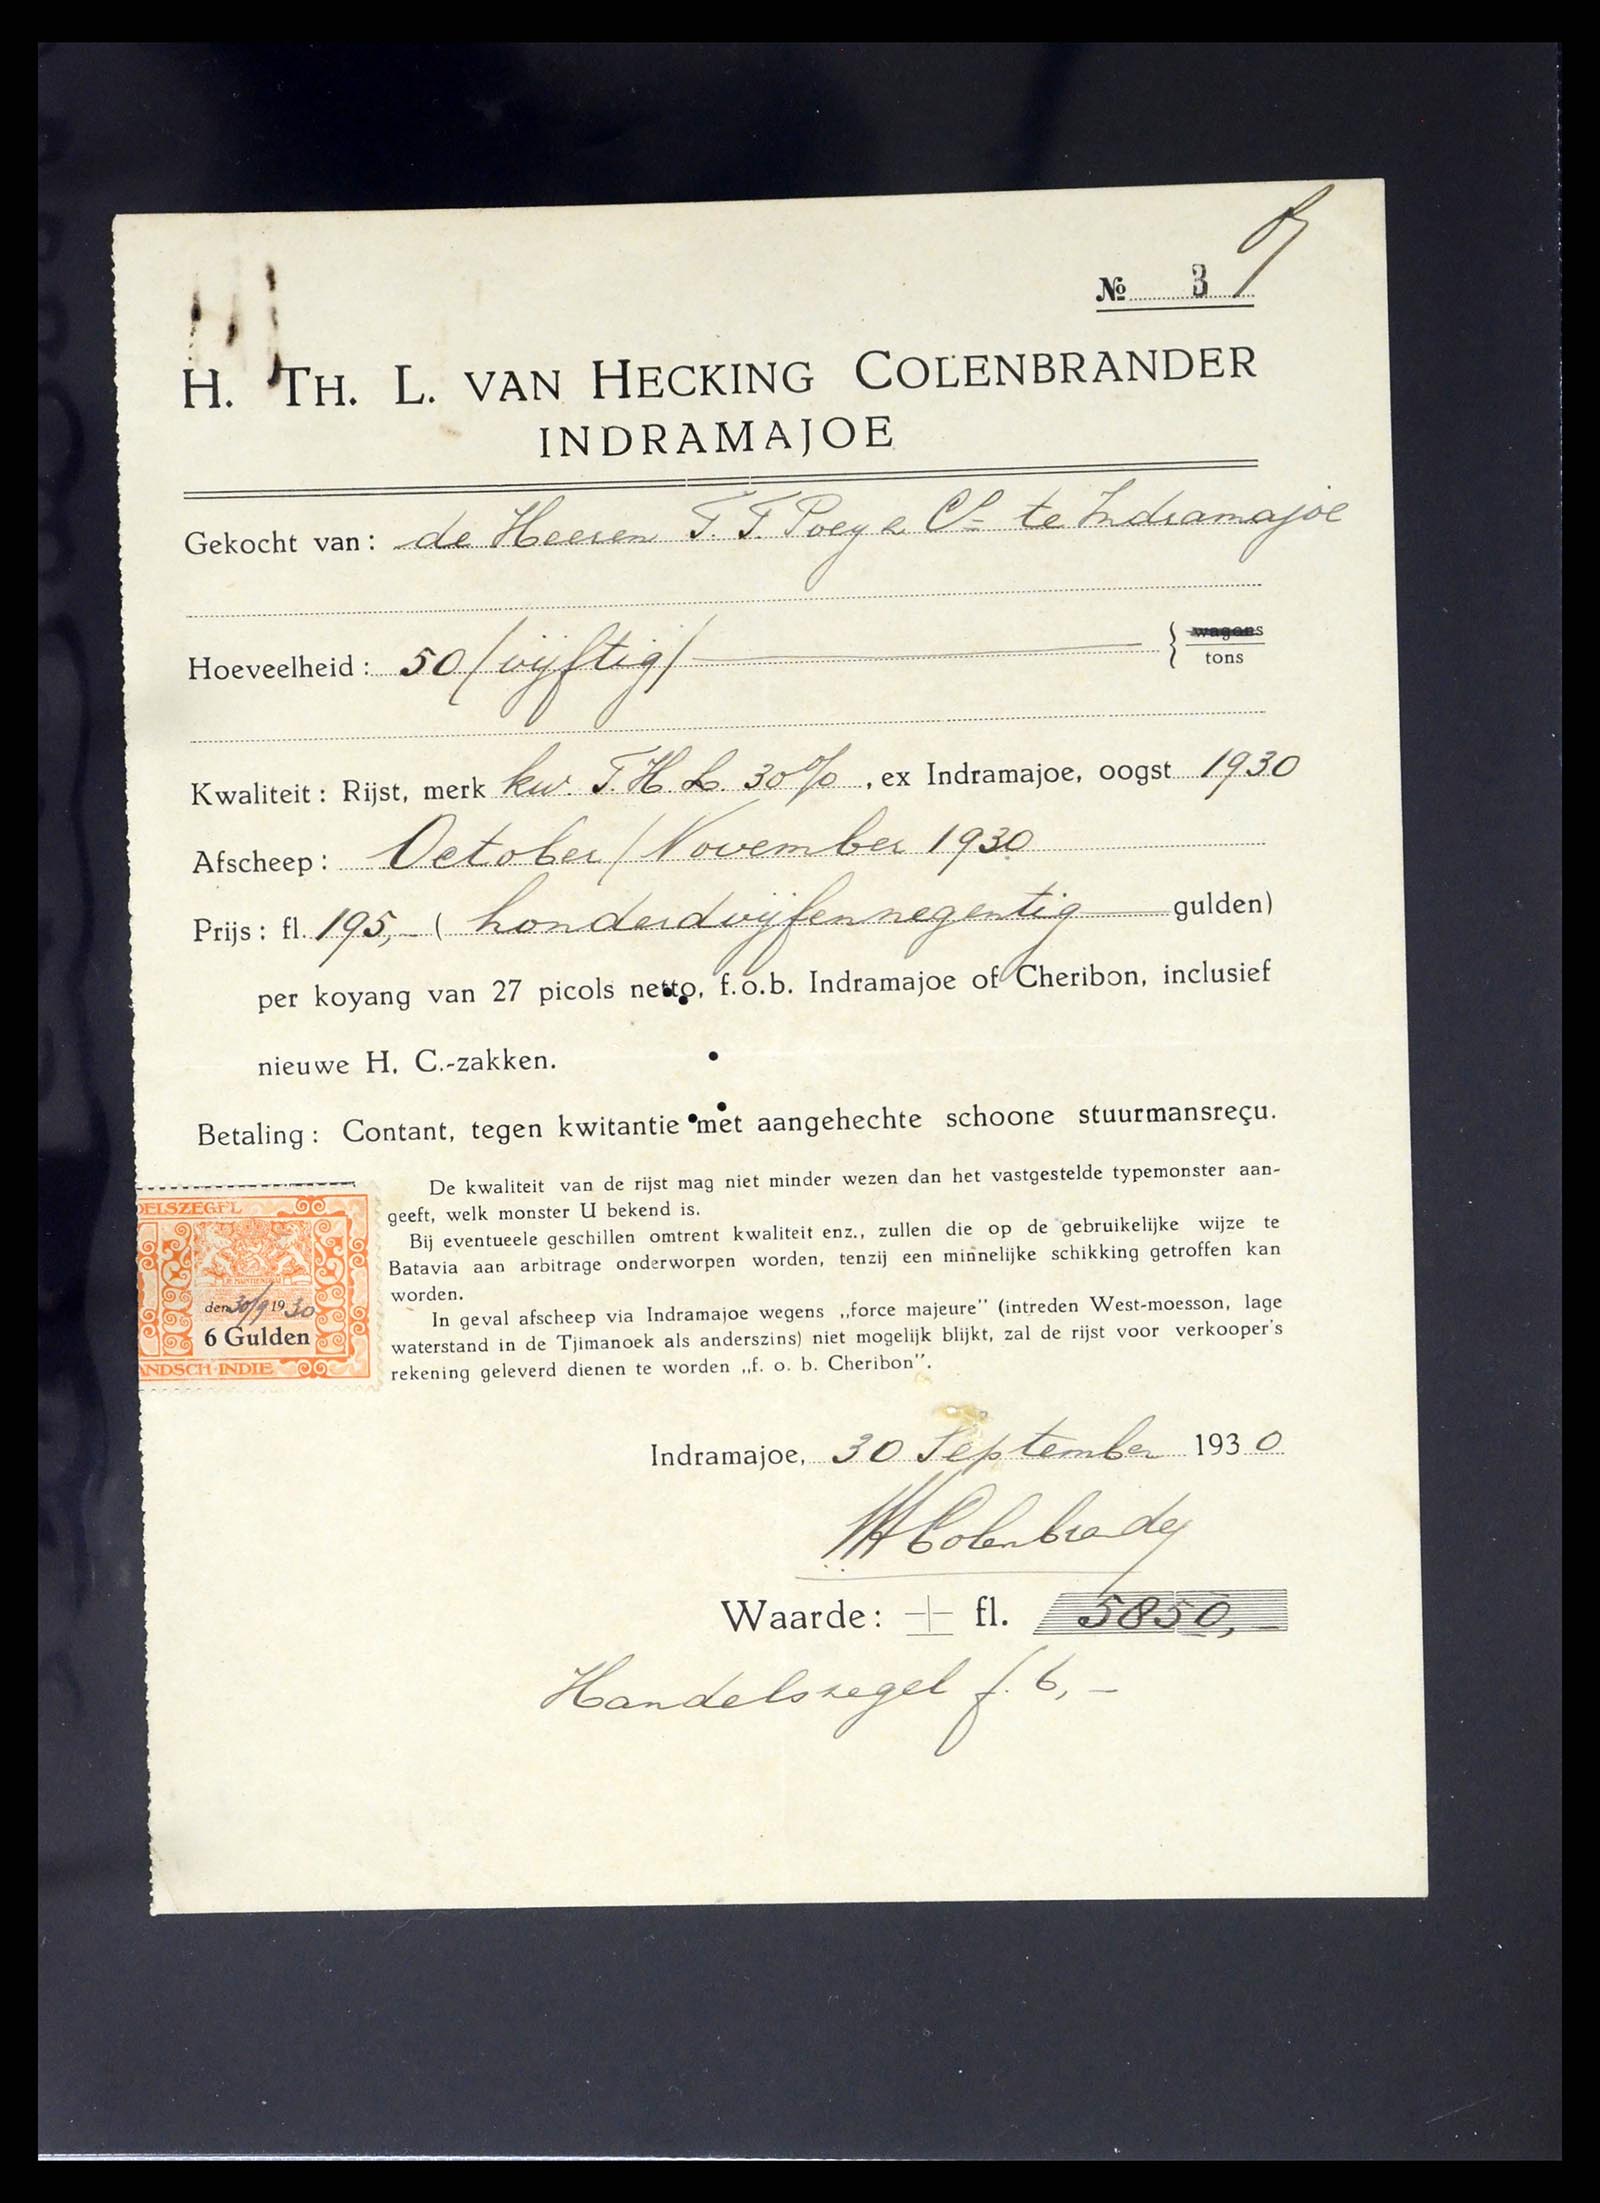 № 3
H. TH. L. VAN HECKING COLENBRANDER
INDRAMAJOE
Gekocht van: de Heeren T. T. Poey & Co te Indramajoe
Hoeveelheid: 50 (vijftig) wagons
tons
Kwaliteit: Rijst, merk kw. T. H. L. 30%, ex Indramajoe, oogst 1930
Afscheep: October/November 1930
Prijs: fl. 195,- (honderdvijfennegentig gulden)
per koyang van 27 picols netto, f.o.b. Indramajoe of Cheribon, inclusief
nieuwe H. C.-zakken.
Betaling: Contant, tegen kwitantie met aangehechte schoone stuurmansreçu.
De kwaliteit van de rijst mag niet minder wezen dan het vastgestelde typemonster aan-
geeft, welk monster U bekend is.
Bij eventueele geschillen omtrent kwaliteit enz., zullen die op de gebruikelijke wijze te
Batavia aan arbitrage onderworpen worden, tenzij een minnelijke schikking getroffen kan
worden.
In geval afscheep via Indramajoe wegens „force majeure” (intreden West-moesson, lage
waterstand in de Tjimanoek als anderszins) niet mogelijk blijkt, zal de rijst voor verkooper's
rekening geleverd dienen te worden „f. o. b. Cheribon”.
DELSZEGEL
den 30/9 1930
6 Gulden
ANDSCH-INDIE
Indramajoe, 30 September 1930
Colenbrander
Waarde: ± fl. 5850,-
Handelszegel f. 6,-